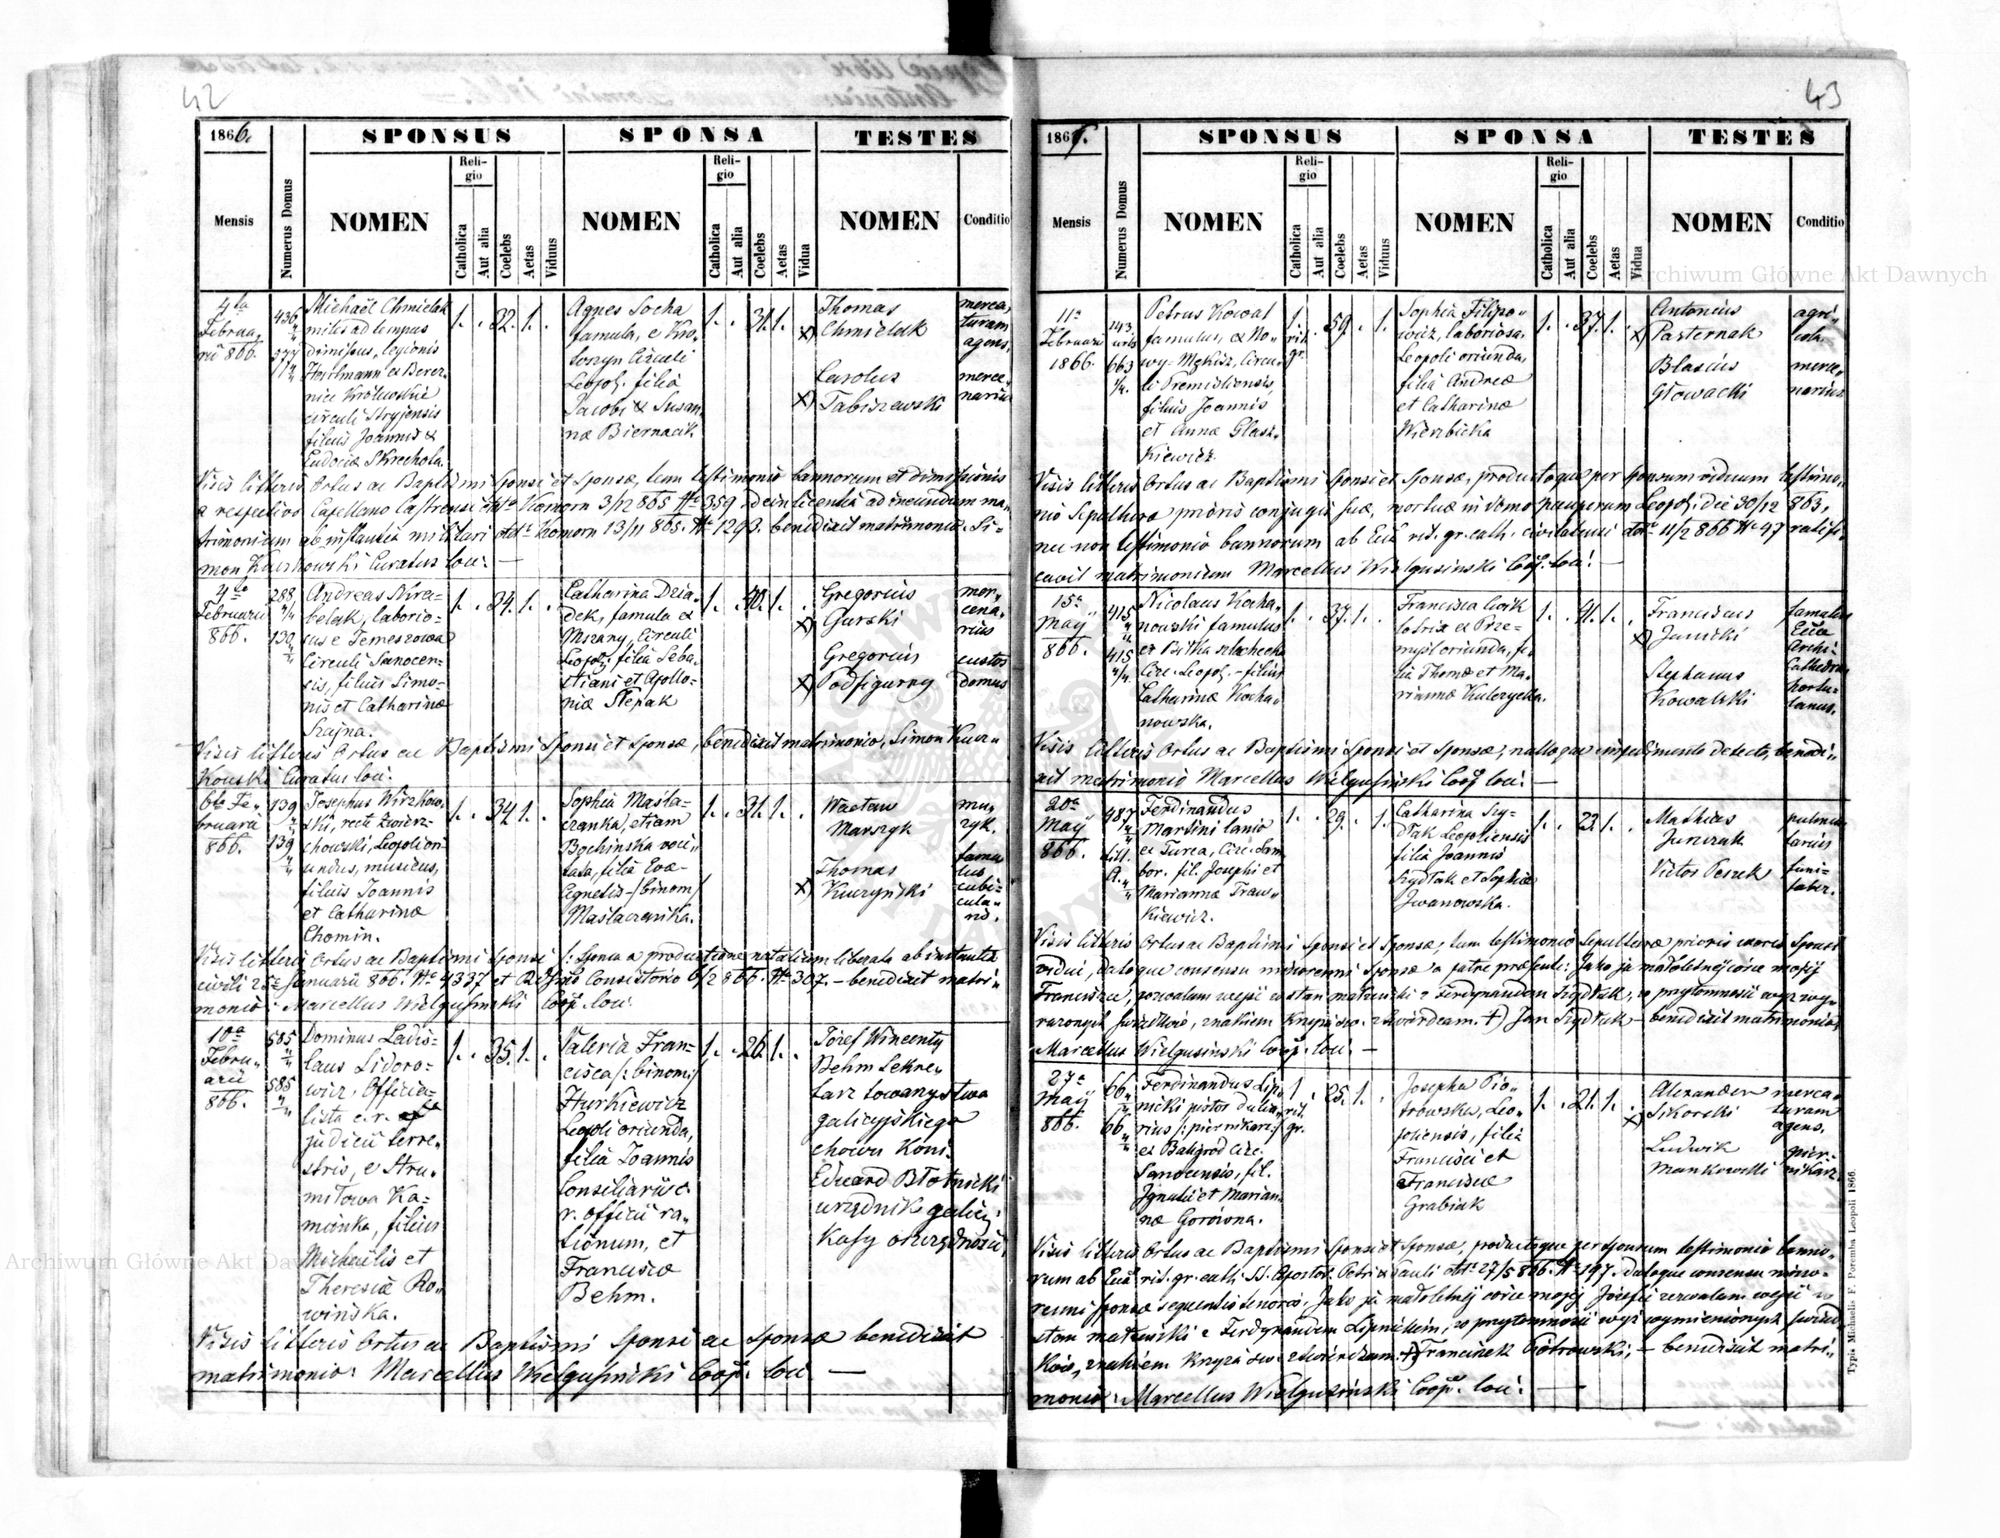 42
1866.
SPONSUS
SPONSA
TESTES
Mensis
Numerus Domus
NOMEN
Religio
Catholica
Aut alia
Coelebs
Aetas
Viduus
NOMEN
Religio
Catholica
Aut alia
Coelebs
Aetas
Vidua
NOMEN
Conditio
4ta
Februa,
rii 866.
436
977
Michaël Chmielak
miles ad tempus
dimissus, legionis
Hartmann ex Berez,
nica Królewska
circuli Stryjensis
filius Joannis &
Eudociæ Skrechota.
1. . 32. 1. .
Agnes Socha
famula, e Kro,
toszyn Circuli
Leopol. filia
Jacobi & Susan,
næ Biernacik.
1. . 31. 1. .
Thomas
Chmielak
merca,
turam
agens,
Carolus
Tabiszewski
merce,
narius
Visis litteris Ortus ac Baptismi Sponsi et Sponsæ, tum testimonio bannorum et dimissionis
a respectivo Capellano Castrensi ddto Komorn 3/12 865 No 359, dein licentiâ ad ineundum ma,
trimonium ab instantiâ militari ddto Komorn 13/11 865. No 1293. benedixit matrimonio: Si=
mon Kurkowski Curatus loci: —
4ta
Februarii
866.
288 2/4
139
Andreas Skra=
belak, laborio=
sus e Temeszowa
Circuli Sanocen=
sis, filius Simo=
nis et Catharinæ
Szajna.
1. . 34. 1. .
Catharina Dzia=
dek, famula ex
Mszany, Circuli
Leopol. filia Seba,
stiani et Apollo=
niæ Slepak
1. . 40. 1. .
Gregorius
Gurski
mer,
cena,
rius
Gregorius
Podfigurny
custos
domus
Visis litteris Ortus ac Baptismi Sponsi et Sponsæ, benedixit matrimonio, Simon Kur=
kowski Curatus loci.
6ta Fe,
bruarii
866.
139
139
Josephus Wirzkow=
ski, recte Zwierz=
chowski, Leopoli ori=
undus, musicus,
filius Joannis
et Catharinæ
Chomin.
1. . 34. 1. .
Sophia Masła=
czanka, etiam
Bochinska voci=
tata, filia Evæ=
Agnetis /: binom:/
Maslaczanka.
1. . 31. 1. .
Wacław
Marszyk
mu,
zyk.
Thomas
Kuczynski
famu
lus
cubi=
cula=
ris.
Visis litteris Ortus ac Baptismi Sponsi /: Sponsa a productione natalium liberata ab instantia
civili 25ta Januarii 866. No 4337 et Rdssimo Consistorio 6/2 866. No 307. – benedixit matri,
monio: Marcellus Wielgusinski Coop. loci.
10a
Febru,
arii
866.
585
585
Dominus Ladis=
laus Sidoro=
wicz, Officia=
lista c. r.
judicii terre,
stris, e Stru=
miłowa Ka=
mionka, filius
Michaëlis et
Theresiæ Ro=
winska.
1. . 35. 1. .
Valeria Fran=
cisca /: binom:/
Hurkiewicz
Leopoli oriunda,
filia Joannis
Consiliarii c.
r. officii ra,
tionum, et
Franciscæ
Behm.
1. . 26. 1. .
Józef Wincenty
Behm Sekre=
tarz towarzystwa
galicyjskiego
chowu koni.
Eduard Błotnicki
urzędnik galicyj.
Kasy oszczędności
Visis litteris Ortus ac Baptismi Sponsi ac Sponsæ benedixit
matrimonio: Marcellus Wielgusinski Coop. loci —
43
186
SPONSUS
SPONSA
TESTES
Mensis
Numerus Domus
NOMEN
Religio
Catholica
Aut alia
Coelebs
Aetas
Viduus
NOMEN
Religio
Catholica
Aut alia
Coelebs
Aetas
Vidua
NOMEN
Conditio
11a
Februarii
1866.
243.
663
Petrus Kowal
famulus, ex No,
wy-Mękisz, Circu,
li Premisliensis,
filius Joannis
et Annæ Glasz,
kiewicz.
1. rit. gr. 59. . 1.
Sophia Filipo=
wicz, laboriosa,
Leopoli oriunda,
filia Andreæ
et Catharinæ
Wierzbicka
1. . 37. 1. .
Antonius
Pasternak
agri,
cola.
Blasius
Głowacki
merce,
narius
Visis litteris Ortus ac Baptismi Sponsi et Sponsæ, productoque per Sponsum viduum testimo,
nio Sepulturæ prioris conjugis suæ, mortuæ in domo pauperum Leopol. die 30/12 865,
nec non testimonio bannorum ab Eccla rit. gr. cath. civitatensi ddto 11/2 866 No 97 ratifi,
cavit matrimonium Marcellus Wielgusinski Coop. loci. —
15a
Maÿ
866.
415
415 2/4
Nicolaus Kocha,
nowski famulus
ex Bitka szlachecka
Circ. Leopol. – filius
Catharinæ Kocha,
nowska.
1. . 37. 1. .
Francisca Cwik
lotrix ex Prze=
myśl oriunda, fi,
lia Thomæ et Ma,
riannæ Kulczycka.
1. . 41. 1. .
Franciscus
Janicki
famulus
Eccæ
Archi,
Cathedralis
Stephanus
Kowalski
hortu,
lanus.
Visis litteris Ortus ac Baptismi Sponsi et Sponsæ, nulloque impedimento detecto, bened,
ixit matrimonio Marcellus Wielgusinski Coop. loci. —
20a
Maÿ
866.
987
Ferdinandus
Martini lanio
ex Turca, Circ. Sam
bor. fil. Josephi et
Mariannæ Traw,
kiewicz.
1. . 29. . 1.
Catharina Szy=
dłak Leopoliensis
filia Joannis
Szydłak et Sophiæ
Iwanowska.
1. . 23. 1. .
Mathias
Jurczak
Victor Peszek
funi=
fabr.
Visis litteris Ortus ac Baptismi Sponsi et Sponsæ, tum testimonio Sepulturæ prioris uxoris Sponsi
vidui, datoque consensu minorenni Sponsæ a patre præsenti: Jako ja małoletniej córce mojej
Franciszce, pozwalam wejść w stan małżeński z Ferdynandem Szydłak, w przytomności wyż wy,
rażonych świadków, znakiem Krzyża św. stwierdzam. †) Jan Szydłak – benedixit matrimonio,
Marcellus Wielgusinski Coop. loci. —
27a
Maÿ
866.
66
66
Ferdinandus Lip,
nicki pistor dulcia,
rius /: piernikarz:/
ex Baligród Circ.
Sanocensis, fil.
Ignatii et Marian,
næ Gorówna.
1. rit. gr. 25. 1. .
Josepha Pio,
trowska, Leo,
poliensis, filia
Francisci et
Franciscæ
Grabiak
1. . 21. 1. .
Alexander
Sikorski
merca,
turam
agens.
Ludwik
Mankowski
pier,
nikarz
Visis litteris Ortus ac Baptismi Sponsi et Sponsæ, productoque per Sponsum testimonio banno,
rum ab Eccla rit. gr. cath. SS. Apostol. Petri & Pauli ddto 27/5 866. No 197. Datoque consensu mino,
renni Sponsæ sequentis tenoris: Jako ja małoletniej córce mojej Józefie zezwalam wejść w
stan małżeński z Ferdynandem Lipnickim, w przytomności wyż wymienionych świad,
ków, znakiem krzyża św. stwierdzam. †) Franciszek Piotrowski, – benedixit matri,
monio: Marcellus Wielgusinski Coop. loci. —
Typis Michaelis F. Poremba Leopoli 1866.
Archiwum Główne Akt Dawnych
Archiwum Główne Akt Dawnych